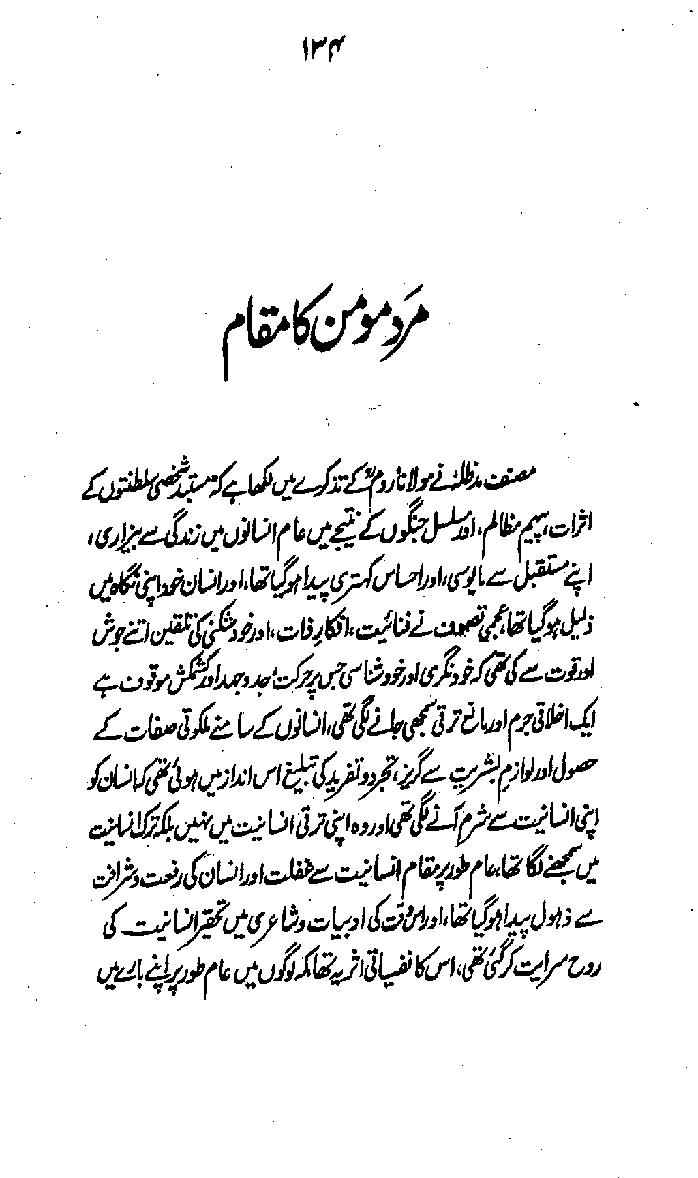 ۱۳۴
مَردِ مومن کا مقام
مصنف مدظلہٗ نے مولانا رومؒ کے تذکرے میں لکھا ہے کہ مستبد شخصی سلطنتوں کے
اثرات، پیہم مظالم، اور مسلسل جنگوں کے نتیجے میں عام انسانوں میں زندگی سے بیزاری،
اپنے مستقبل سے مایوسی، اور احساس کمتری پیدا ہوگیا تھا، اور انسان خود اپنی نگاہ میں
ذلیل ہوگیا تھا، عجمی تصوف نے فنائیت، انکارِ ذات، اور خود شکنی کی تلقین اتنے جوش
اور قوت سے کی تھی کہ خود نگری اور خود شناسی جس پر حرکت، جدوجہد اور کشمکش موقوف ہے
ایک اخلاقی جرم اور مانع ترقی سمجھی جانے لگی تھی، انسانوں کے سامنے ملکوتی صفات کے
حصول اور لوازم بشریت سے گریز، تجرد و تفرید کی تبلیغ اس انداز میں ہوئی تھی کہ انسان کو
اپنی انسانیت سے شرم آنے لگی تھی اور وہ اپنی ترقی انسانیت میں نہیں بلکہ ترک انسانیت
میں سمجھنے لگا تھا، عام طور پر مقام انسانیت سے غفلت اور انسان کی رفعت و شرافت
سے ذہول پیدا ہوگیا تھا، اور اس وقت کی ادبیات و شاعری میں تحقیر انسانیت کی
روح سرایت کر گئی تھی، اس کا نفسیاتی اثر یہ تھا کہ لوگوں میں عام طور پر اپنے بارے میں